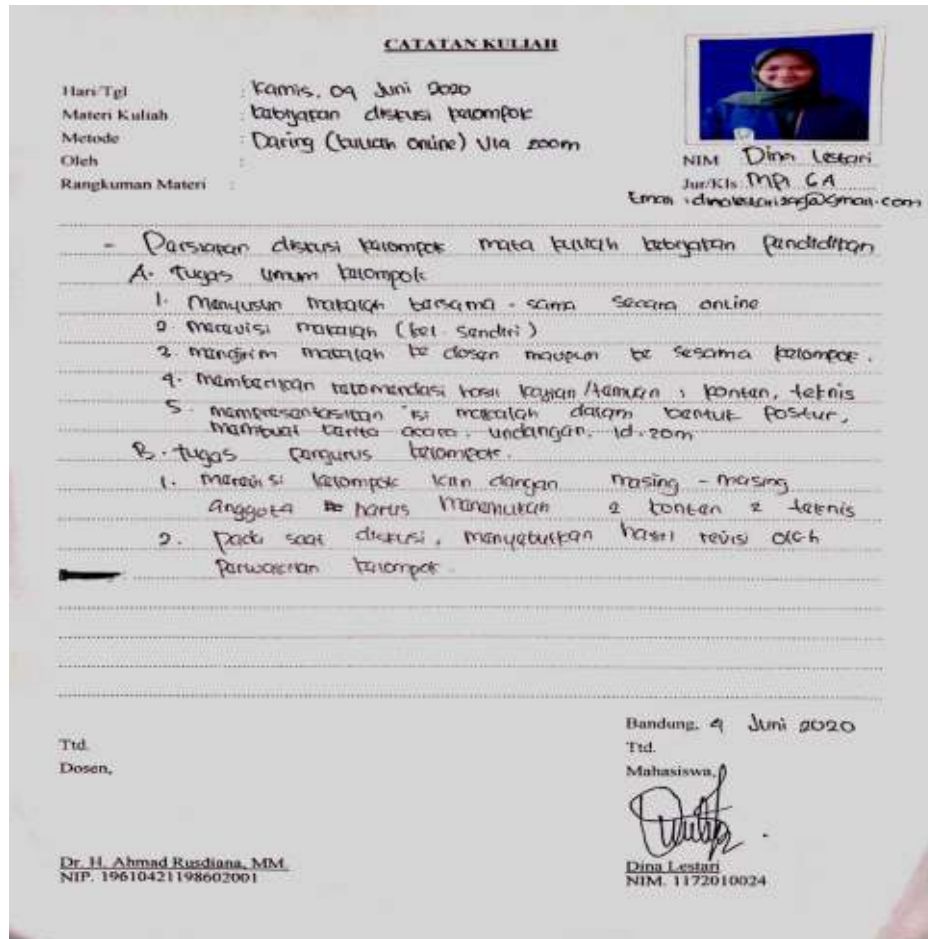 CATATAN KULIAH
Hari/Tgl : Kamis, 04 Juni 2020
Materi Kuliah : kebijakan diskusi kelompok
Metode : Daring (kuliah online) Via zoom
Oleh :
Rangkuman Materi :
NIM Dina Lestari
Jur/Kls: MPI 6A
Email :
- Persiapan diskusi kelompok mata kuliah kebijakan pendidikan
A. Tugas umum kelompok
1. Menyusun makalah bersama - sama secara online
2. merevisi makalah (kel. Sendiri)
3. mengirim makalah ke dosen maupun ke sesama kelompok.
4. memberikan rekomendasi hasil kajian/temuan : konten, teknis
5. mempresentasikan isi makalah dalam bentuk postur,
membuat berita acara, undangan, id. zom
B. tugas pengurus kelompok.
1. merevisi kelompok lain dengan masing - masing
anggota harus menemukan 2 konten 2 teknis
2. pada saat diskusi, menyebutkan hasil revisi oleh
perwakilan kelompok.
Bandung, 4 Juni 2020
Ttd.
Dosen,
Ttd.
Mahasiswa,
Dr. H. Ahmad Rusdiana, MM.
NIP. 19610421198602001
Dina Lestari
NIM. 1172010024